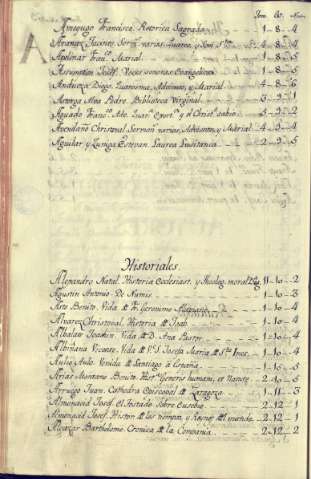 Tom. Est. Num.
A
Ameyugo Francisco. Retorica Sagrada. 1 - 8 - 4
Aranaz Jacinto. Serm. varios, Quares. y Dom. 4 - 8 - 4
Aguilar Fran. Marial. 1 - 8 -
Assumption Josef. Voces sonoras Evangelicas. 1 - 8 -
Andueza Diego. Quaresma, Adviento, y Marial. 4 - 8 - 6
Astorga Alva Pedro. Biblioteca Virginal. 3 - 9 - 1
Aguado Fran. Ado. Quar. Exort. y el Christ. sabio 3 - 9 - 2
Avendaño Christoval. Sermon. varios, Adviento, y Marial. 4 - 9 - 4
Aguilar y Zuñiga Estevan. Laurea Lusitana. 2 - 9 - 5
Historiales.
Alexandro Natal. Historia Ecclesiast. y Theolog. moral. 11 - 10 - 2
Agustin Antonio. De Numis. 1 - 10 - 3
Arte Benito. Vida de Fr. Geronimo 1 - 10 - 4
Alvarez Christoval. Historia de Job. 1 - 10 - 4
Albalat Joachin. Vida de D. Ana Pastor. 1 - 10 - 4
Albiñana Vicente. Vida de V. S. Josefa Maria de Sta. Ines. 1 - 10 - 4
Aulo. Venida de Santiago a España. 1 - 10 - 5
Arias Montano Benito. Hist. Generis humani, et Nature. 2 - 10 - 5
Arruego Juan. Cathedra Episcopal de Zaragoza. 1 - 11 - 3
Almonacid Josef. El Tostado sobre Eusebio. 2 - 12 - 1
Almonacid Josef. Histor. de los tiempos, y Reynos del mundo. 2 - 12 - 1
Alcazar Bartholome. Cronica de la Compania. 2 - 12 - 2